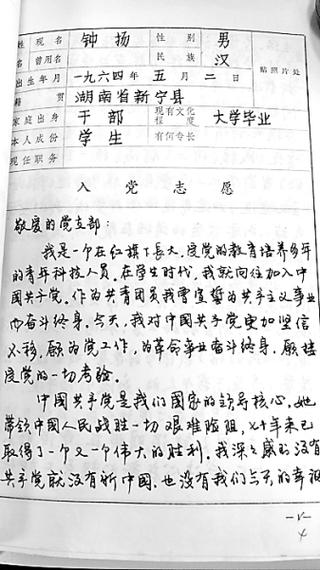 姓 现名 钟扬 性别 男
名 曾用名 民族 汉
出生年月 一九六四年五月二日 贴照片处
籍贯 湖南省新宁县
家庭出身 干部 现有文化程度 大学毕业
本人成份 学生 有何专长
现任职务
入党志愿
敬爱的党支部：
我是一个在红旗下长大，受党的教育培养多年
的青年科技人员。在学生时代，我就向往加入中
国共产党。作为共青团员我曾宣誓为共产主义事业
而奋斗终身。今天，我对中国共产党更加坚信
不移，愿为党工作，为革命事业奋斗终身，愿接
受党的一切考验。
中国共产党是我们国家的领导核心。她
带领中国人民战胜一切艰难险阻，七十年来已
取得了一个又一个伟大的胜利。我深深感到没有
共产党就没有新中国，也没有我们今天的幸福